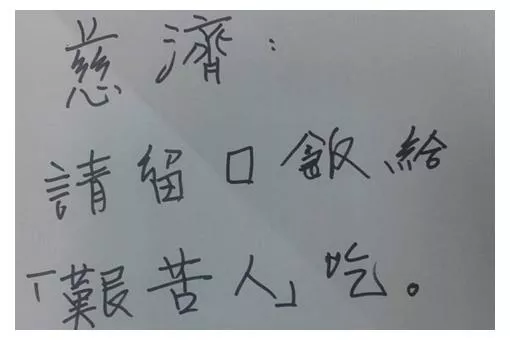 慈濟：
請留口飯給
「艱苦人」吃。